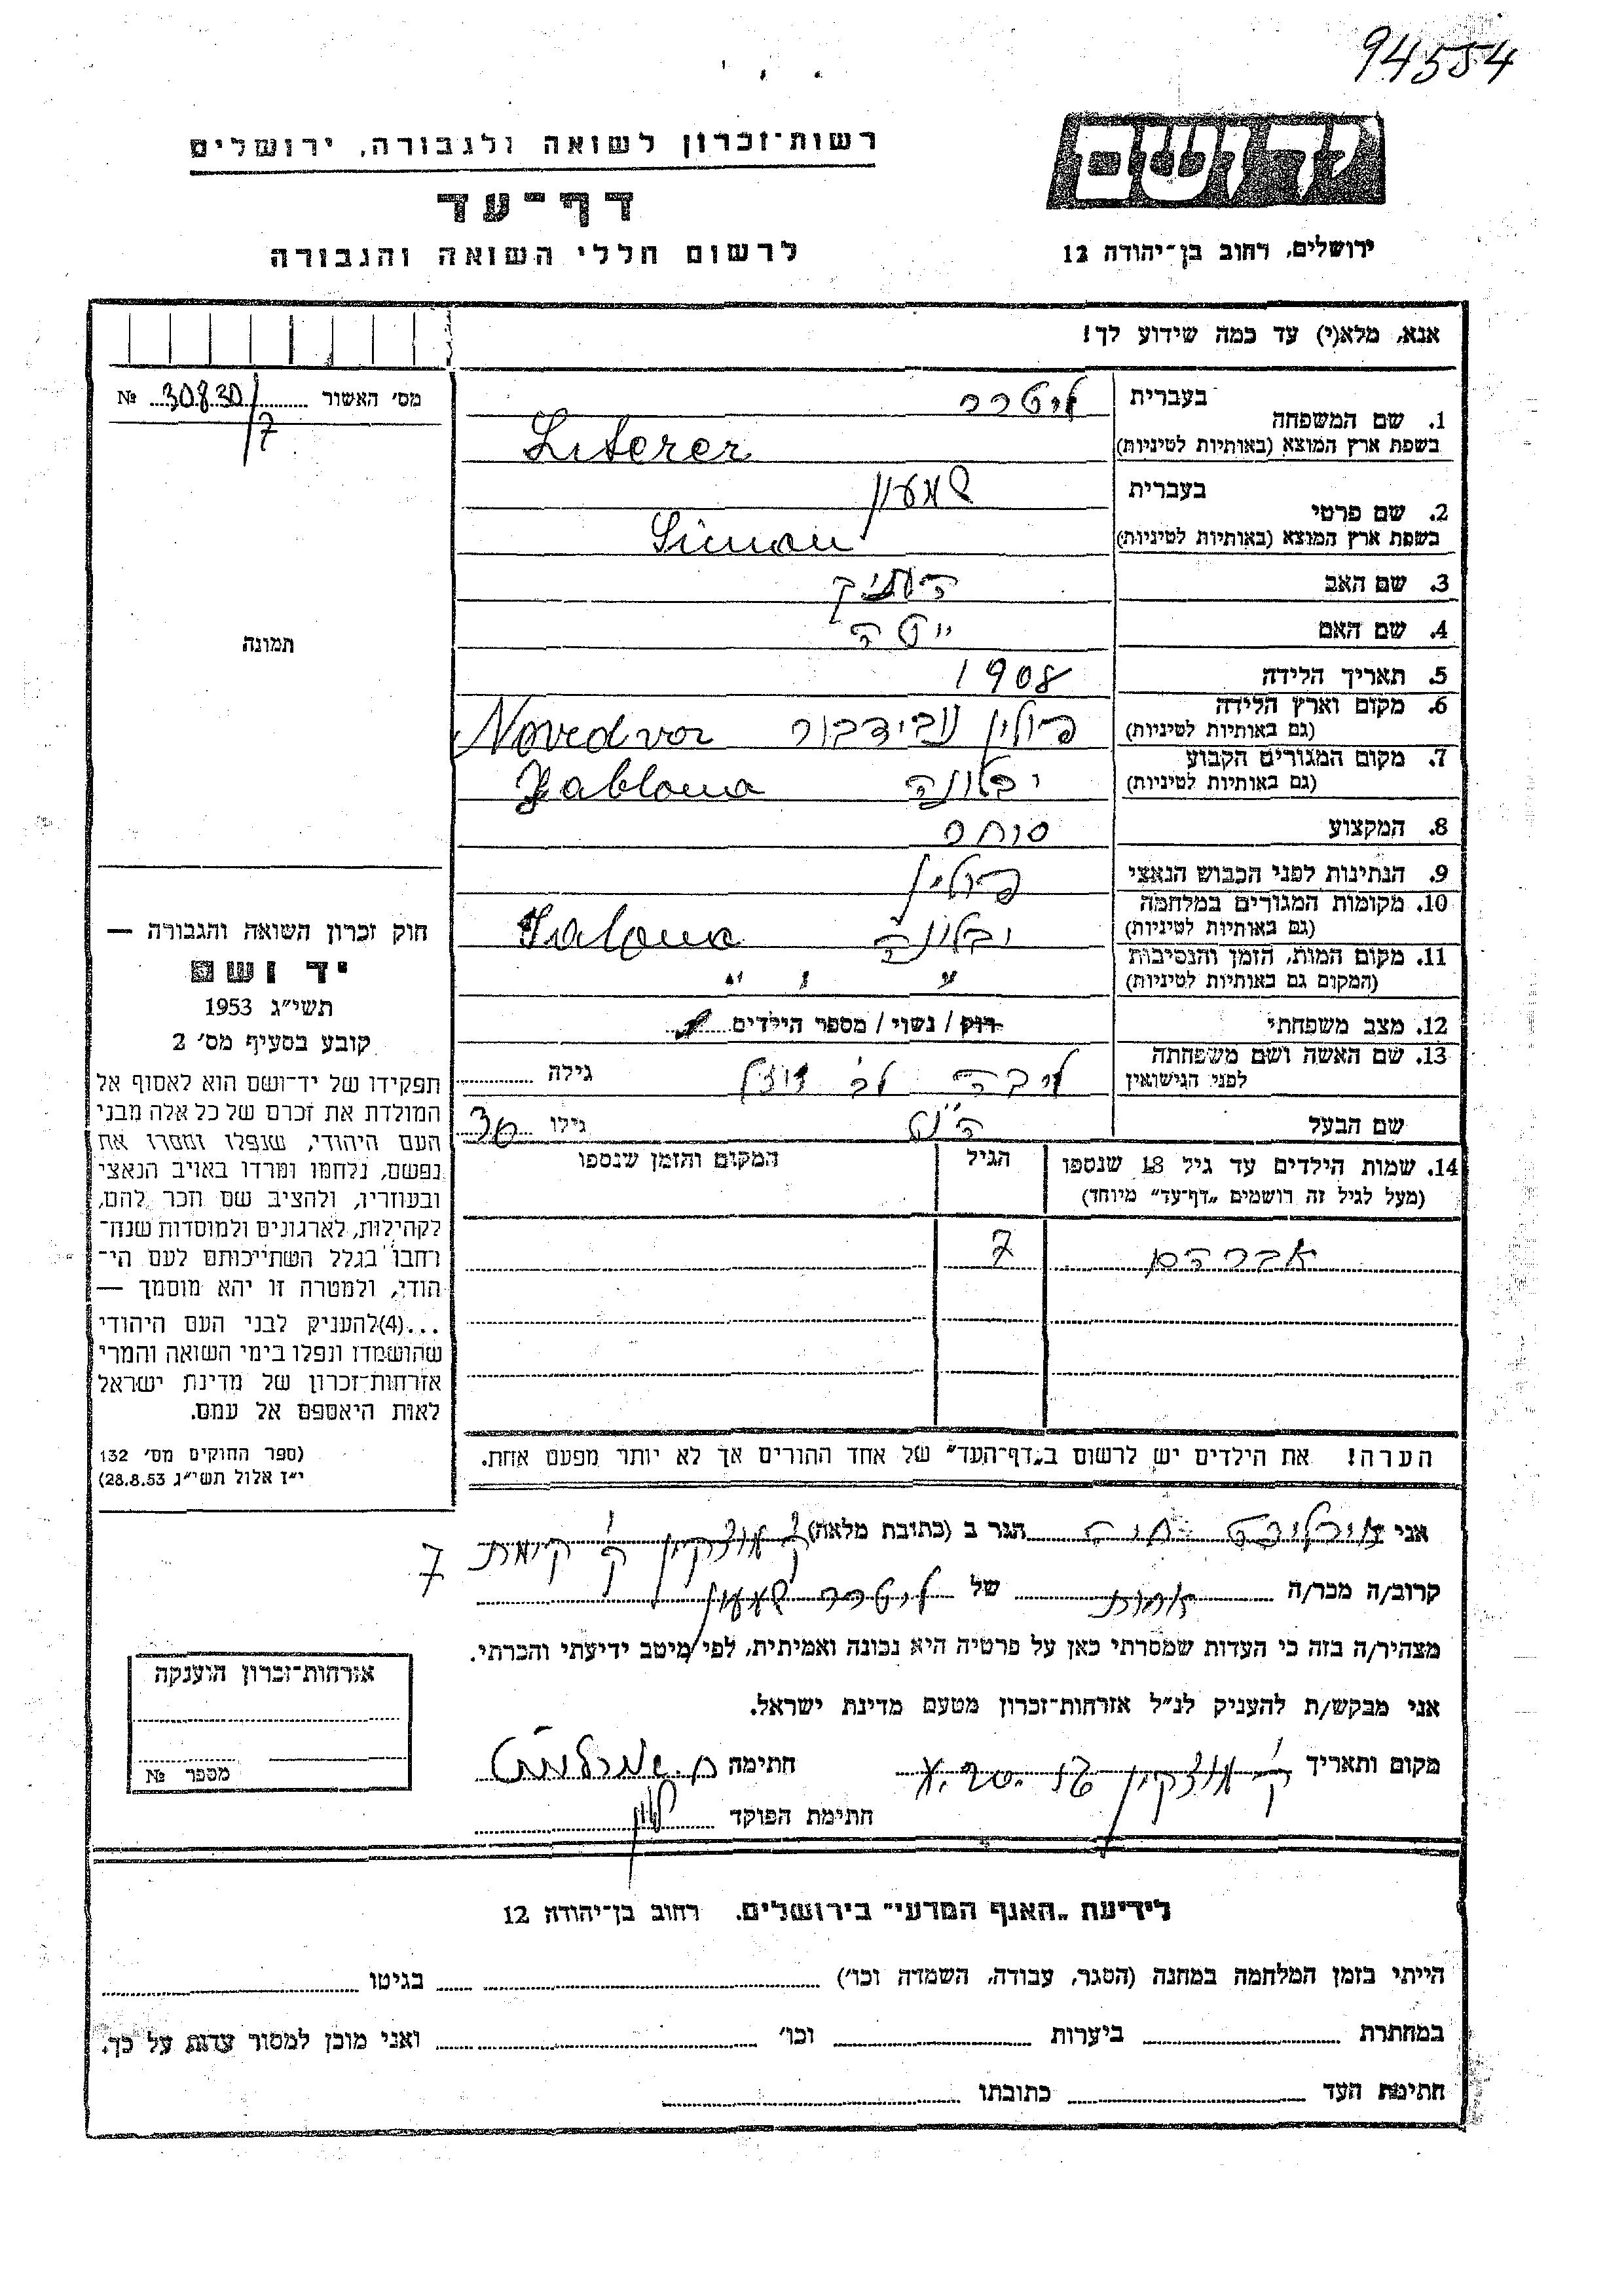 94554
יד ושם
ירושלים, רחוב בן־יהודה 12
רשות־זכרון לשואה ולגבורה, ירושלים
דף־עד
לרשום חללי השואה והגבורה
אנא, מלא(י) עד כמה שידוע לך!
מס׳ האשור 30830/7 №
1. שם המשפחה
בעברית ליטרר
בשפת ארץ המוצא (באותיות לטיניות) Literer
2. שם פרטי
בעברית שמעון
בשפת ארץ המוצא (באותיות לטיניות) Simon
3. שם האב
4. שם האם יטה
5. תאריך הלידה 1908
6. מקום וארץ הלידה
(גם באותיות לטיניות) פולין נובידבור Novedvor
7. מקום המגורים הקבוע
(גם באותיות לטיניות) יבלונה Jablona
8. המקצוע סוחר
9. הנתינות לפני הכבוש הנאצי פולין
10. מקומות המגורים במלחמה
(גם באותיות לטיניות) יבלונה
11. מקום המות, הזמן והנסיבות
(המקום גם באותיות לטיניות) " " "
12. מצב משפחתי רוק / נשוי / מספר הילדים
13. שם האשה ושם משפחתה
לפני הנישואין ליבה גילה
שם הבעל גילו 36
14. שמות הילדים עד גיל 18 שנספו
(מעל לגיל זה רושמים „דף־עד" מיוחד)
הגיל
המקום והזמן שנספו
אברהם 7
הערה! את הילדים יש לרשום ב„דף־העד" של אחד ההורים אך לא יותר מפעם אחת.
תמונה
חוק זכרון השואה והגבורה —
יד ושם
תשי״ג 1953
קובע בסעיף מס׳ 2
תפקידו של יד־ושם הוא לאסוף אל
המולדת את זכרם של כל אלה מבני
העם היהודי, שנפלו ומסרו את
נפשם, נלחמו ומרדו באויב הנאצי
ובעוזריו, ולהציב שם וזכר להם,
לקהילות, לארגונים ולמוסדות שנח־
רחבו בגלל השתייכותם לעם הי־
הודי, ולמטרה זו יהא מוסמך —
...(4)להעניק לבני העם היהודי
שהושמדו ונפלו בימי השואה והמרי
אזרחות־זכרון של מדינת ישראל
לאות היאספם אל עמם.
(ספר החוקים מס׳ 132
י״ז אלול תשי״ג 28.8.53)
אני הגר ב (כתובת מלאה) ק׳ מוצקין 7
קרוב/ה מכר/ה אחות של ליטרר שמעון
מצהיר/ה בזה כי העדות שמסרתי כאן על פרטיה היא נכונה ואמיתית, לפי מיטב ידיעתי והכרתי.
אני מבקש/ת להעניק לנ״ל אזרחות־זכרון מטעם מדינת ישראל.
מקום ותאריך ק׳ מוצקין חתימה
חתימת הפוקד
אזרחות־זכרון הוענקה
מספר №
לידיעת „האגף המדעי" בירושלים. רחוב בן־יהודה 12
הייתי בזמן המלחמה במחנה (הסגר, עבודה, השמדה וכו׳) בגיטו
במחתרת ביערות וכו׳ ואני מוכן למסור עדות על כך.
חתימת העד כתובתו